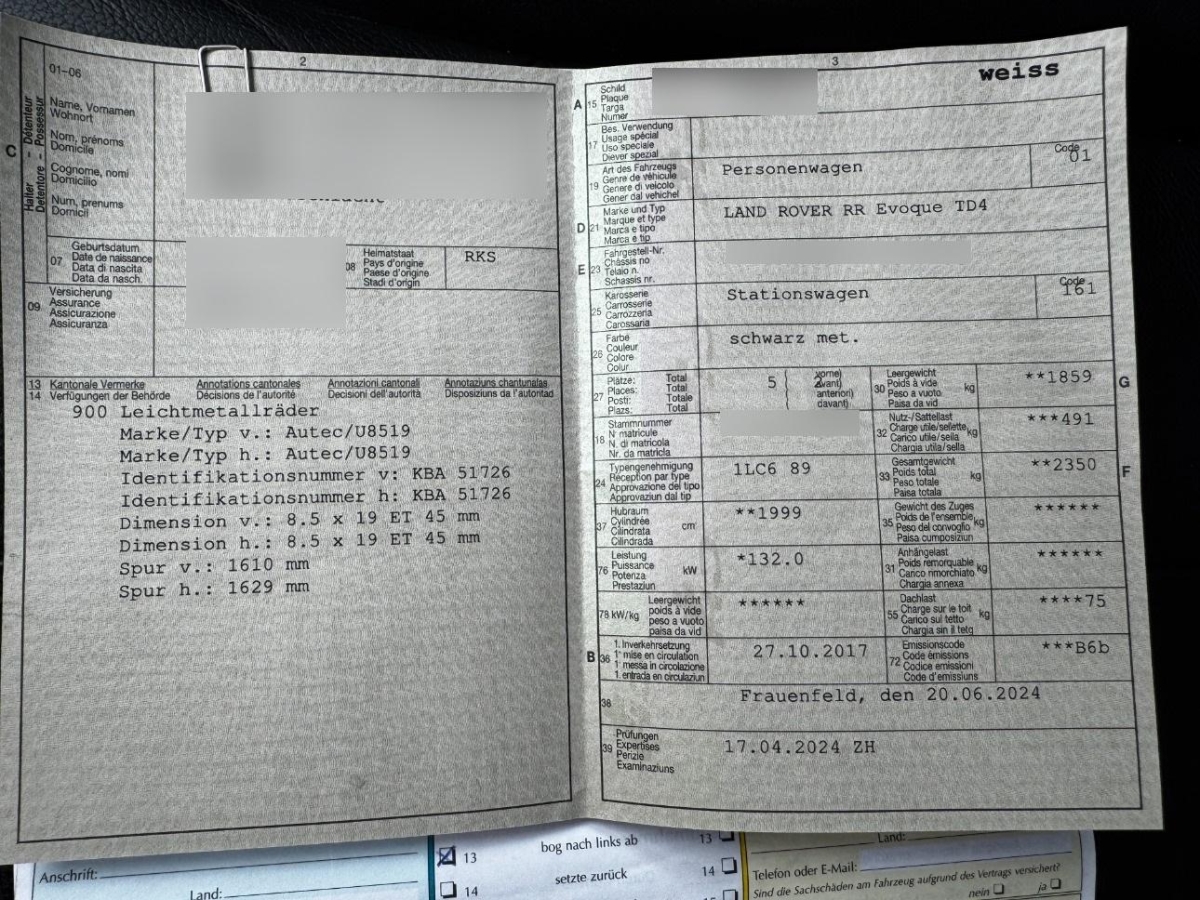 2
01-06
C
Halter - Détenteur
Detentore - Possessur
Name, Vornamen
Wohnort
Nom, prénoms
Domicile
Cognome, nomi
Domicilio
Num, prenums
Domicil
07
Geburtsdatum
Date de naissance
Data di nascita
Data da nasch.
08
Heimatstaat
Pays d'origine
Paese d'origine
Stadi d'origin
RKS
09
Versicherung
Assurance
Assicurazione
Assicuranza
13 Kantonale Vermerke Annotations cantonales Annotazioni cantonali Annotaziuns chantunalas
14 Verfügungen der Behörde Décisions de l'autorité Decisioni dell'autorità Disposiziuns da l'autoritad
900 Leichtmetallräder
Marke/Typ v.: Autec/U8519
Marke/Typ h.: Autec/U8519
Identifikationsnummer v: KBA 51726
Identifikationsnummer h: KBA 51726
Dimension v.: 8.5 x 19 ET 45 mm
Dimension h.: 8.5 x 19 ET 45 mm
Spur v.: 1610 mm
Spur h.: 1629 mm
3
weiss
A 15
Schild
Plaque
Targa
Numer
17
Bes. Verwendung
Usage spécial
Uso speciale
Diever spezial
19
Art des Fahrzeugs
Genre de véhicule
Genere di veicolo
Gener dal vehichel
Personenwagen
Code
01
D 21
Marke und Typ
Marque et type
Marca e tipo
Marca e tip
LAND ROVER RR Evoque TD4
E 23
Fahrgestell-Nr.
Châssis no
Telaio n.
Schassis nr.
25
Karosserie
Carrosserie
Carrozzeria
Carossaria
Stationswagen
Code
161
26
Farbe
Couleur
Colore
Colur
schwarz met.
27
Plätze: Total
Places: Total
Posti: Totale
Plazs: Total
5
vorne)
avant)
anteriori)
davant)
30
Leergewicht
Poids à vide
Peso a vuoto
Paisa da vid
kg
**1859
G
18
Stammnummer
N° matricule
N. di matricola
Nr. da matricla
32
Nutz-/Sattellast
Charge utile/sellette
Carico utile/sella
Chargia utila/sella
kg
***491
24
Typengenehmigung
Réception par type
Approvazione del tipo
Approvaziun dal tip
1LC6 89
33
Gesamtgewicht
Poids total
Peso totale
Paisa totala
kg
**2350
F
37
Hubraum
Cylindrée
Cilindrata
Cilindrada
cm³
**1999
35
Gewicht des Zuges
Poids de l'ensemble
Peso del convoglio
Paisa cumposiziun
kg
******
76
Leistung
Puissance
Potenza
Prestaziun
kW
*132.0
31
Anhängelast
Poids remorquable
Carico rimorchiato
Chargia annexa
kg
******
78 kW/kg
Leergewicht
poids à vide
peso a vuoto
paisa da vid
******
55
Dachlast
Charge sur le toit
Carico sul tetto
Chargia sin il tetg
kg
****75
B 36
1. Inverkehrsetzung
1re mise en circulation
1a messa in circolazione
1. entrada en circulaziun
27.10.2017
72
Emissionscode
Code émissions
Codice emissioni
Code d'emissiuns
***B6b
38
Frauenfeld, den 20.06.2024
39
Prüfungen
Expertises
Perizie
Examinaziuns
17.04.2024 ZH
Anschrift:
Land:
13 bog nach links ab 13
14 setzte zurück 14
Land:
Telefon oder E-Mail:
Sind die Sachschäden am Fahrzeug aufgrund des Vertrags versichert?
nein ja